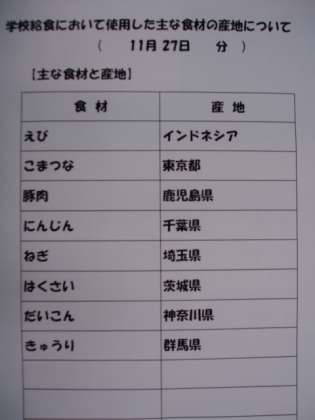 学校給食において使用した主な食材の産地について
( 11月 27日 分 )
[主な食材と産地]
食材 産地
えび インドネシア
こまつな 東京都
豚肉 鹿児島県
にんじん 千葉県
ねぎ 埼玉県
はくさい 茨城県
だいこん 神奈川県
きゅうり 群馬県